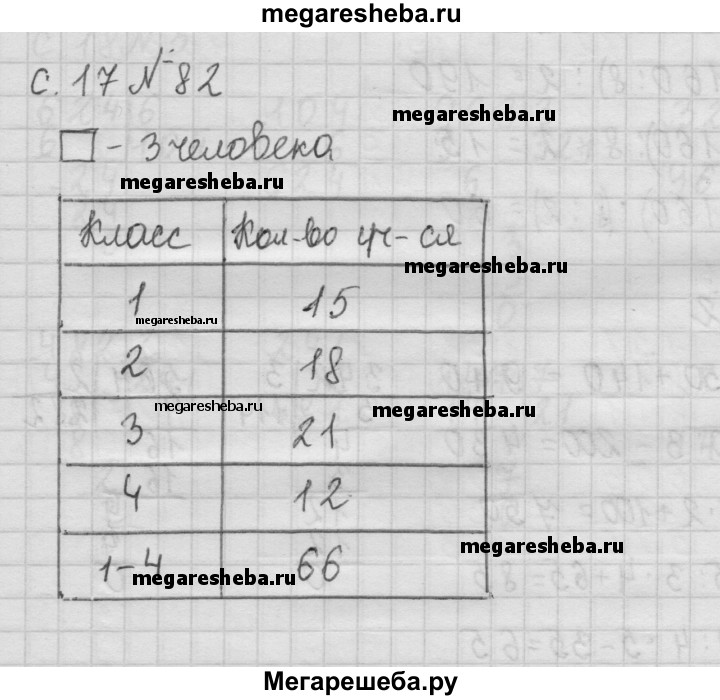 megaresheba.ru
с. 17 № 82
megaresheba.ru
□ - 3 человека
megaresheba.ru
Класс Кол-во уч-ся
megaresheba.ru
1 15
megaresheba.ru
2 18
megaresheba.ru megaresheba.ru
3 21
4 12
megaresheba.ru
1-4 66
megaresheba.ru
Мегарешеба.ру